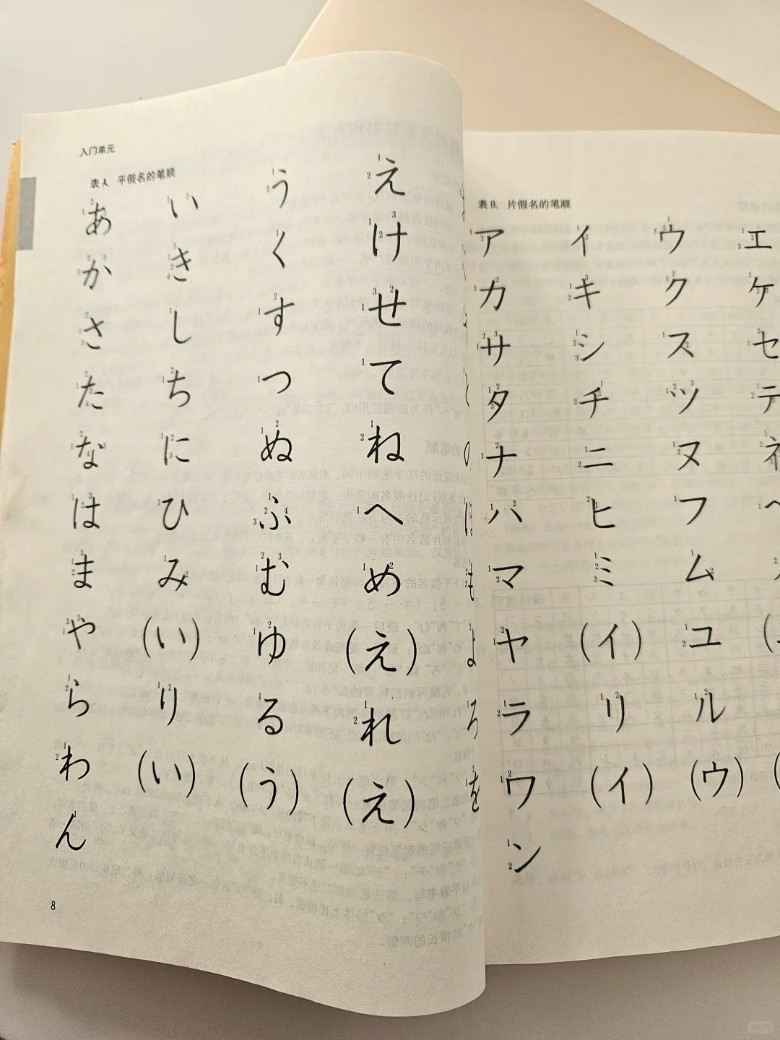 入门单元
表A. 平假名的笔顺
あ い う え
か き く け
さ し す せ
た ち つ て
な に ぬ ね
は ひ ふ へ
ま み む め
や (い) ゆ (え)
ら り る れ
わ (い) (う) (え)
ん
8
表B. 片假名的笔顺
ア イ ウ エ
カ キ ク ケ
サ シ ス セ
タ チ ツ テ
ナ ニ ヌ
ハ ヒ フ
マ ミ ム
ヤ (イ) ユ
ラ リ ル
ワ (イ) (ウ)
ン